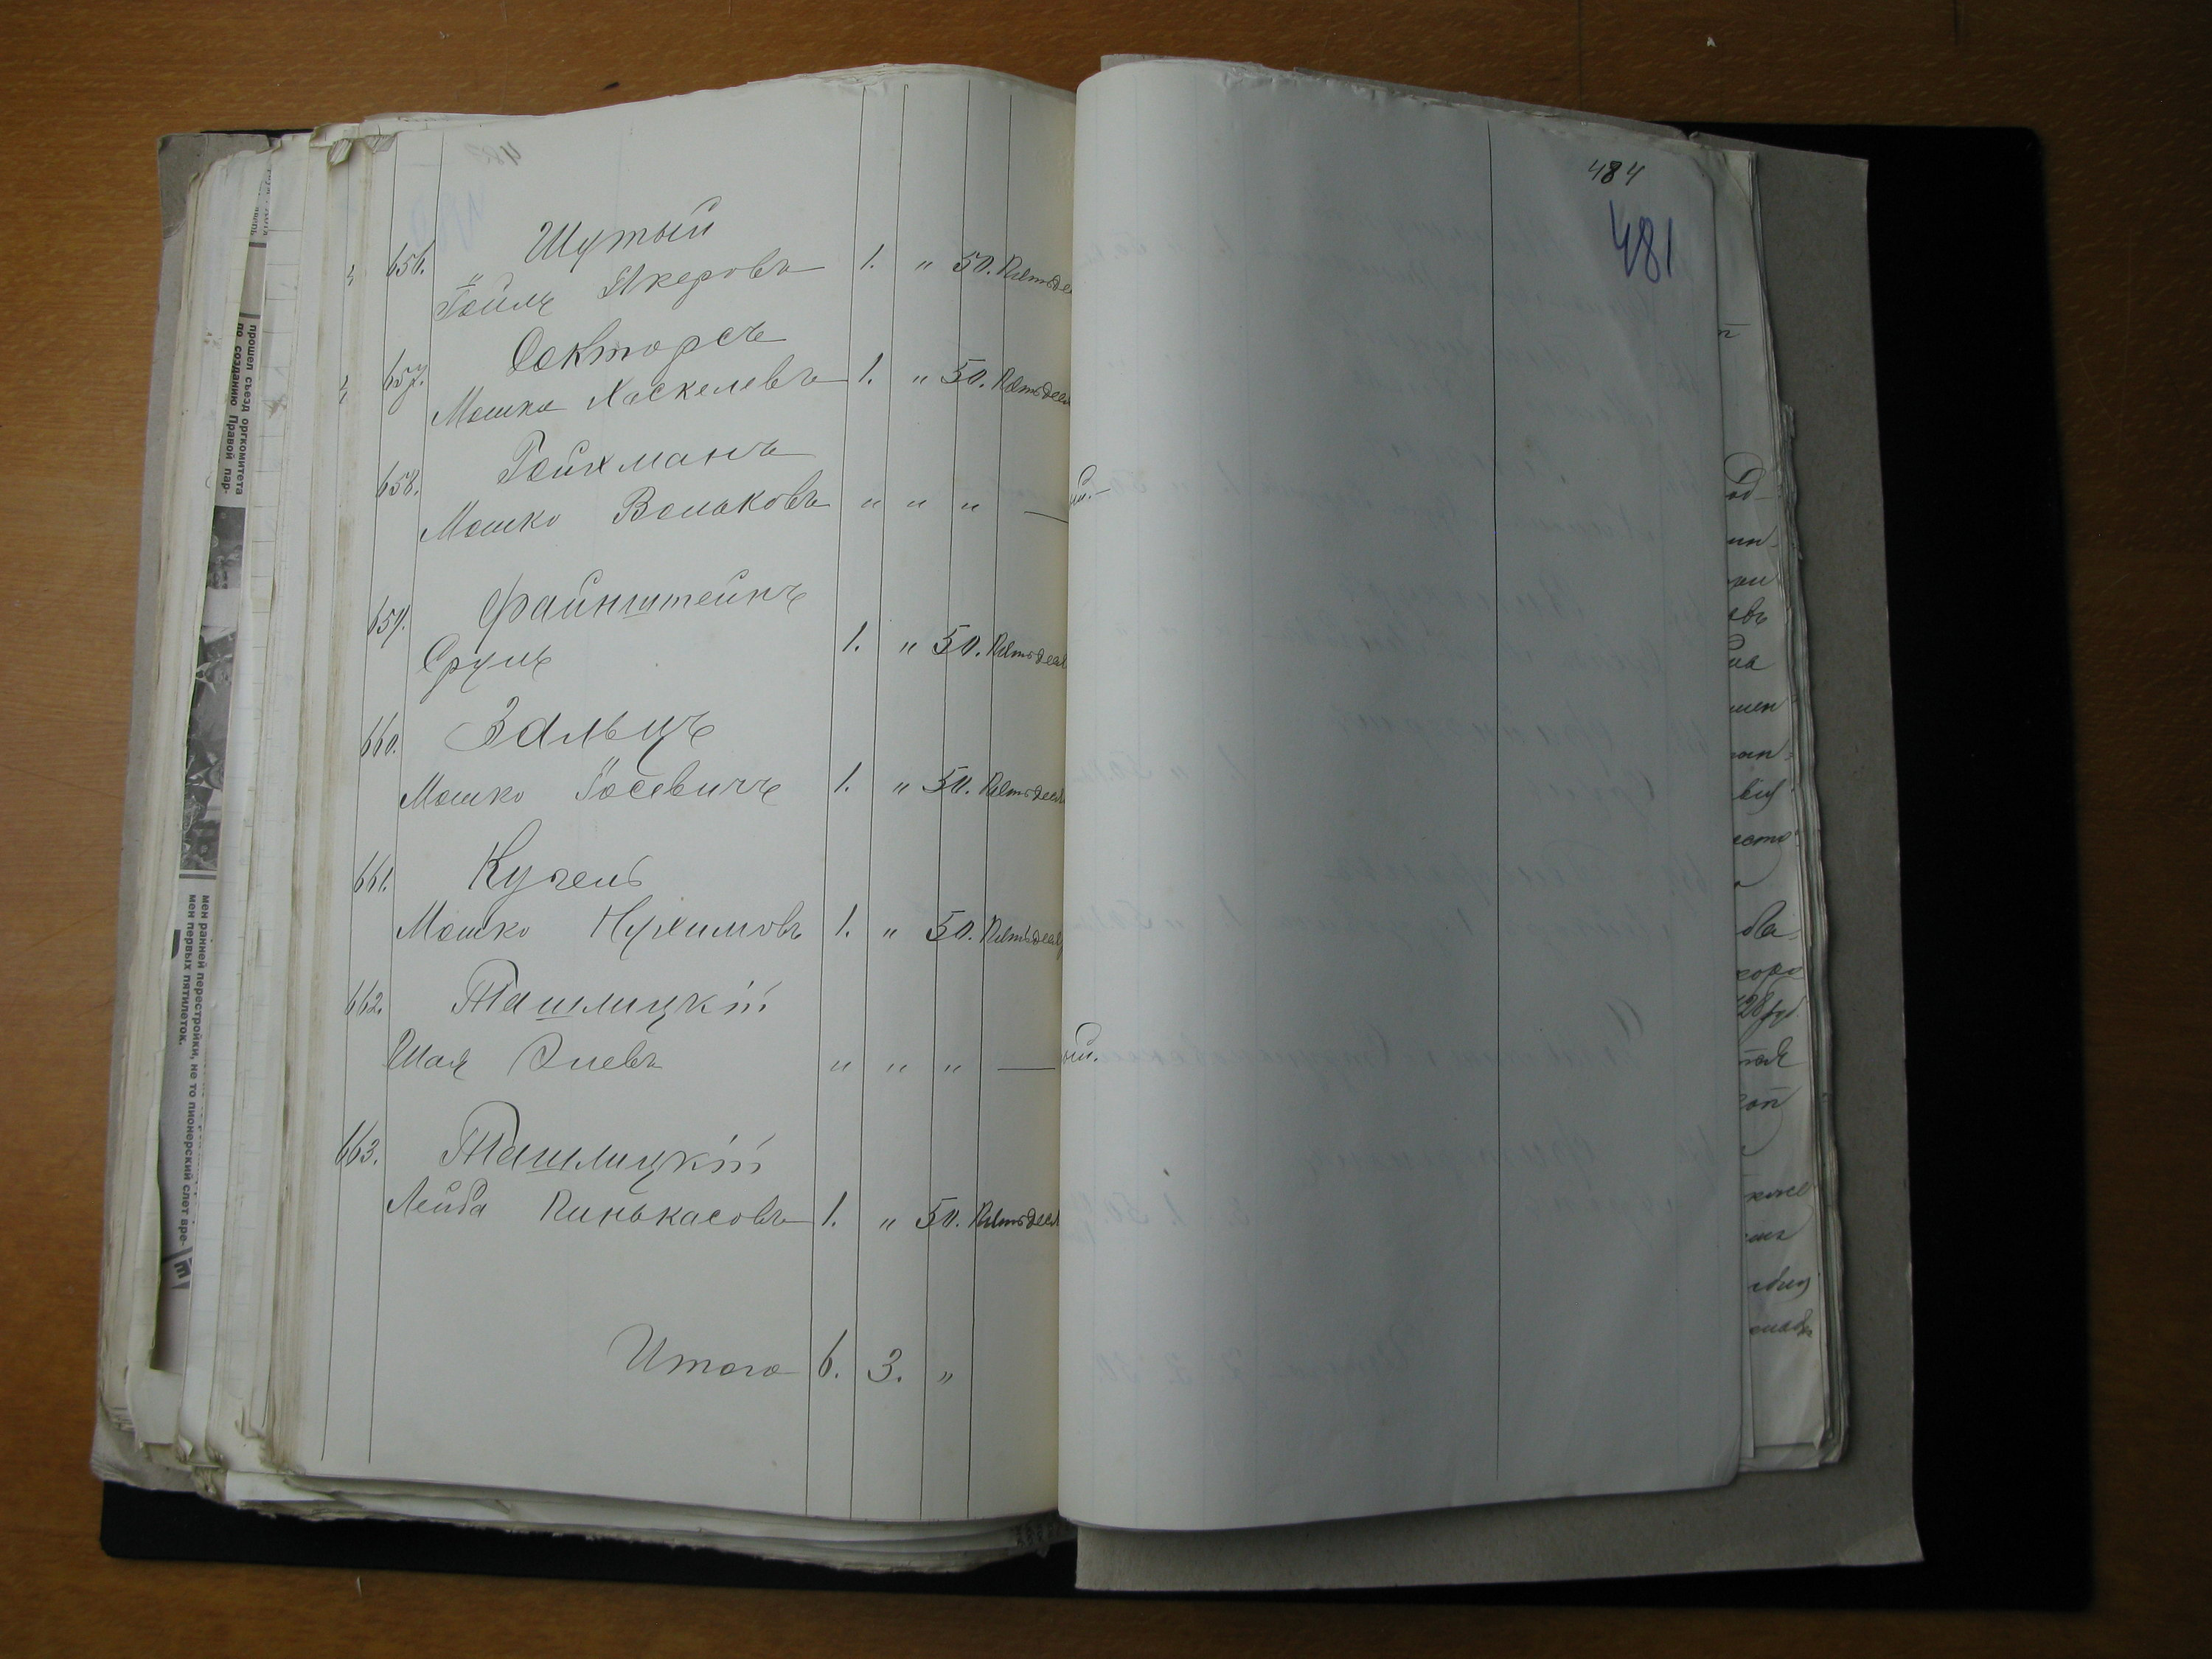 484
481
656. Шутый
Іойль Якеровъ 1. " 50. Пятьдес
657. Сектарсъ
Мошко Хаскелевъ 1. " 50. Пятьдеся
658. Гойхманъ
Мошко Вольковъ " " " —
659. Файнштейнъ
Сруль 1. " 50. Пятьдеся
660. Зальцъ
Мошко Іосевичъ 1. " 50. Пятьдеся
661. Кугель
Мошко Нухимовъ 1. " 50. Пятьдеся
662. Ташлицкій
Шая Элевъ " " " —
663. Ташлицкій
Лейба Пинькасовъ 1. " 50. Пятьдеся
Итого 6. 3. "
прошел съезд оргкомитета
по созданию Правой пар-
мен ранней перестройки, не то пионерский слет вре-
мен первых пятилеток.